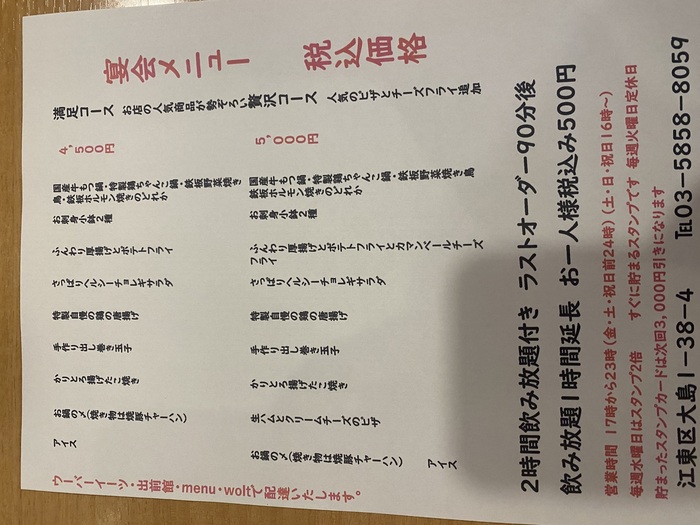 宴会メニュー　税込価格
満足コース　お店の人気商品が勢ぞろい
4,500円
国産牛もつ鍋・特製鶏ちゃんこ鍋・鉄板野菜焼き
鳥・鉄板ホルモン焼きのどれか
お刺身小鉢2種
ふんわり厚揚げとポテトフライ
さっぱりヘルシーチョレギサラダ
特製自慢の鶏の唐揚げ
手作り出し巻き玉子
かりとろ揚げたこ焼き
お鍋の〆(焼き物は焼豚チャーハン)
アイス
贅沢コース　人気のピザとチーズフライ追加
5,000円
国産牛もつ鍋・特製鶏ちゃんこ鍋・鉄板野菜焼き鳥
・鉄板ホルモン焼きのどれか
お刺身小鉢2種
ふんわり厚揚げとポテトフライとカマンベールチーズ
フライ
さっぱりヘルシーチョレギサラダ
特製自慢の鶏の唐揚げ
手作り出し巻き玉子
かりとろ揚げたこ焼き
生ハムとクリームチーズのピザ
お鍋の〆(焼き物は焼豚チャーハン)
アイス
ウーバーイーツ・出前館・menu・woltで配達いたします。
2時間飲み放題付き　ラストオーダー90分後
飲み放題1時間延長　お一人様税込み500円
営業時間　17時から23時(金・土・祝日前24時)(土・日・祝日16時〜)
毎週水曜日はスタンプ2倍　すぐに貯まるスタンプです　毎週火曜日定休日
貯まったスタンプカードは次回3,000円引きになります
江東区大島1-38-4　℡03-5858-8059